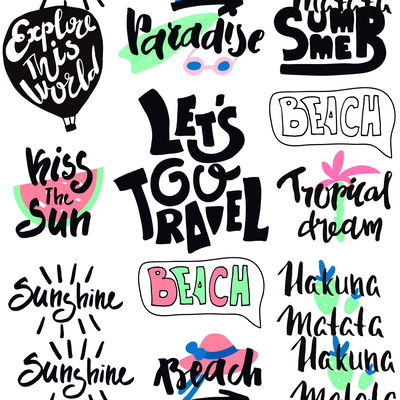 Explore
This
World
Paradise
Matata
SUMMER
LET'S
GO
TRAVEL
BEACH
Kiss
The
Sun
Tropical
dream
Sunshine
BEACH
Hakuna
Matata
Sunshine
Beach
Hakuna
Matata